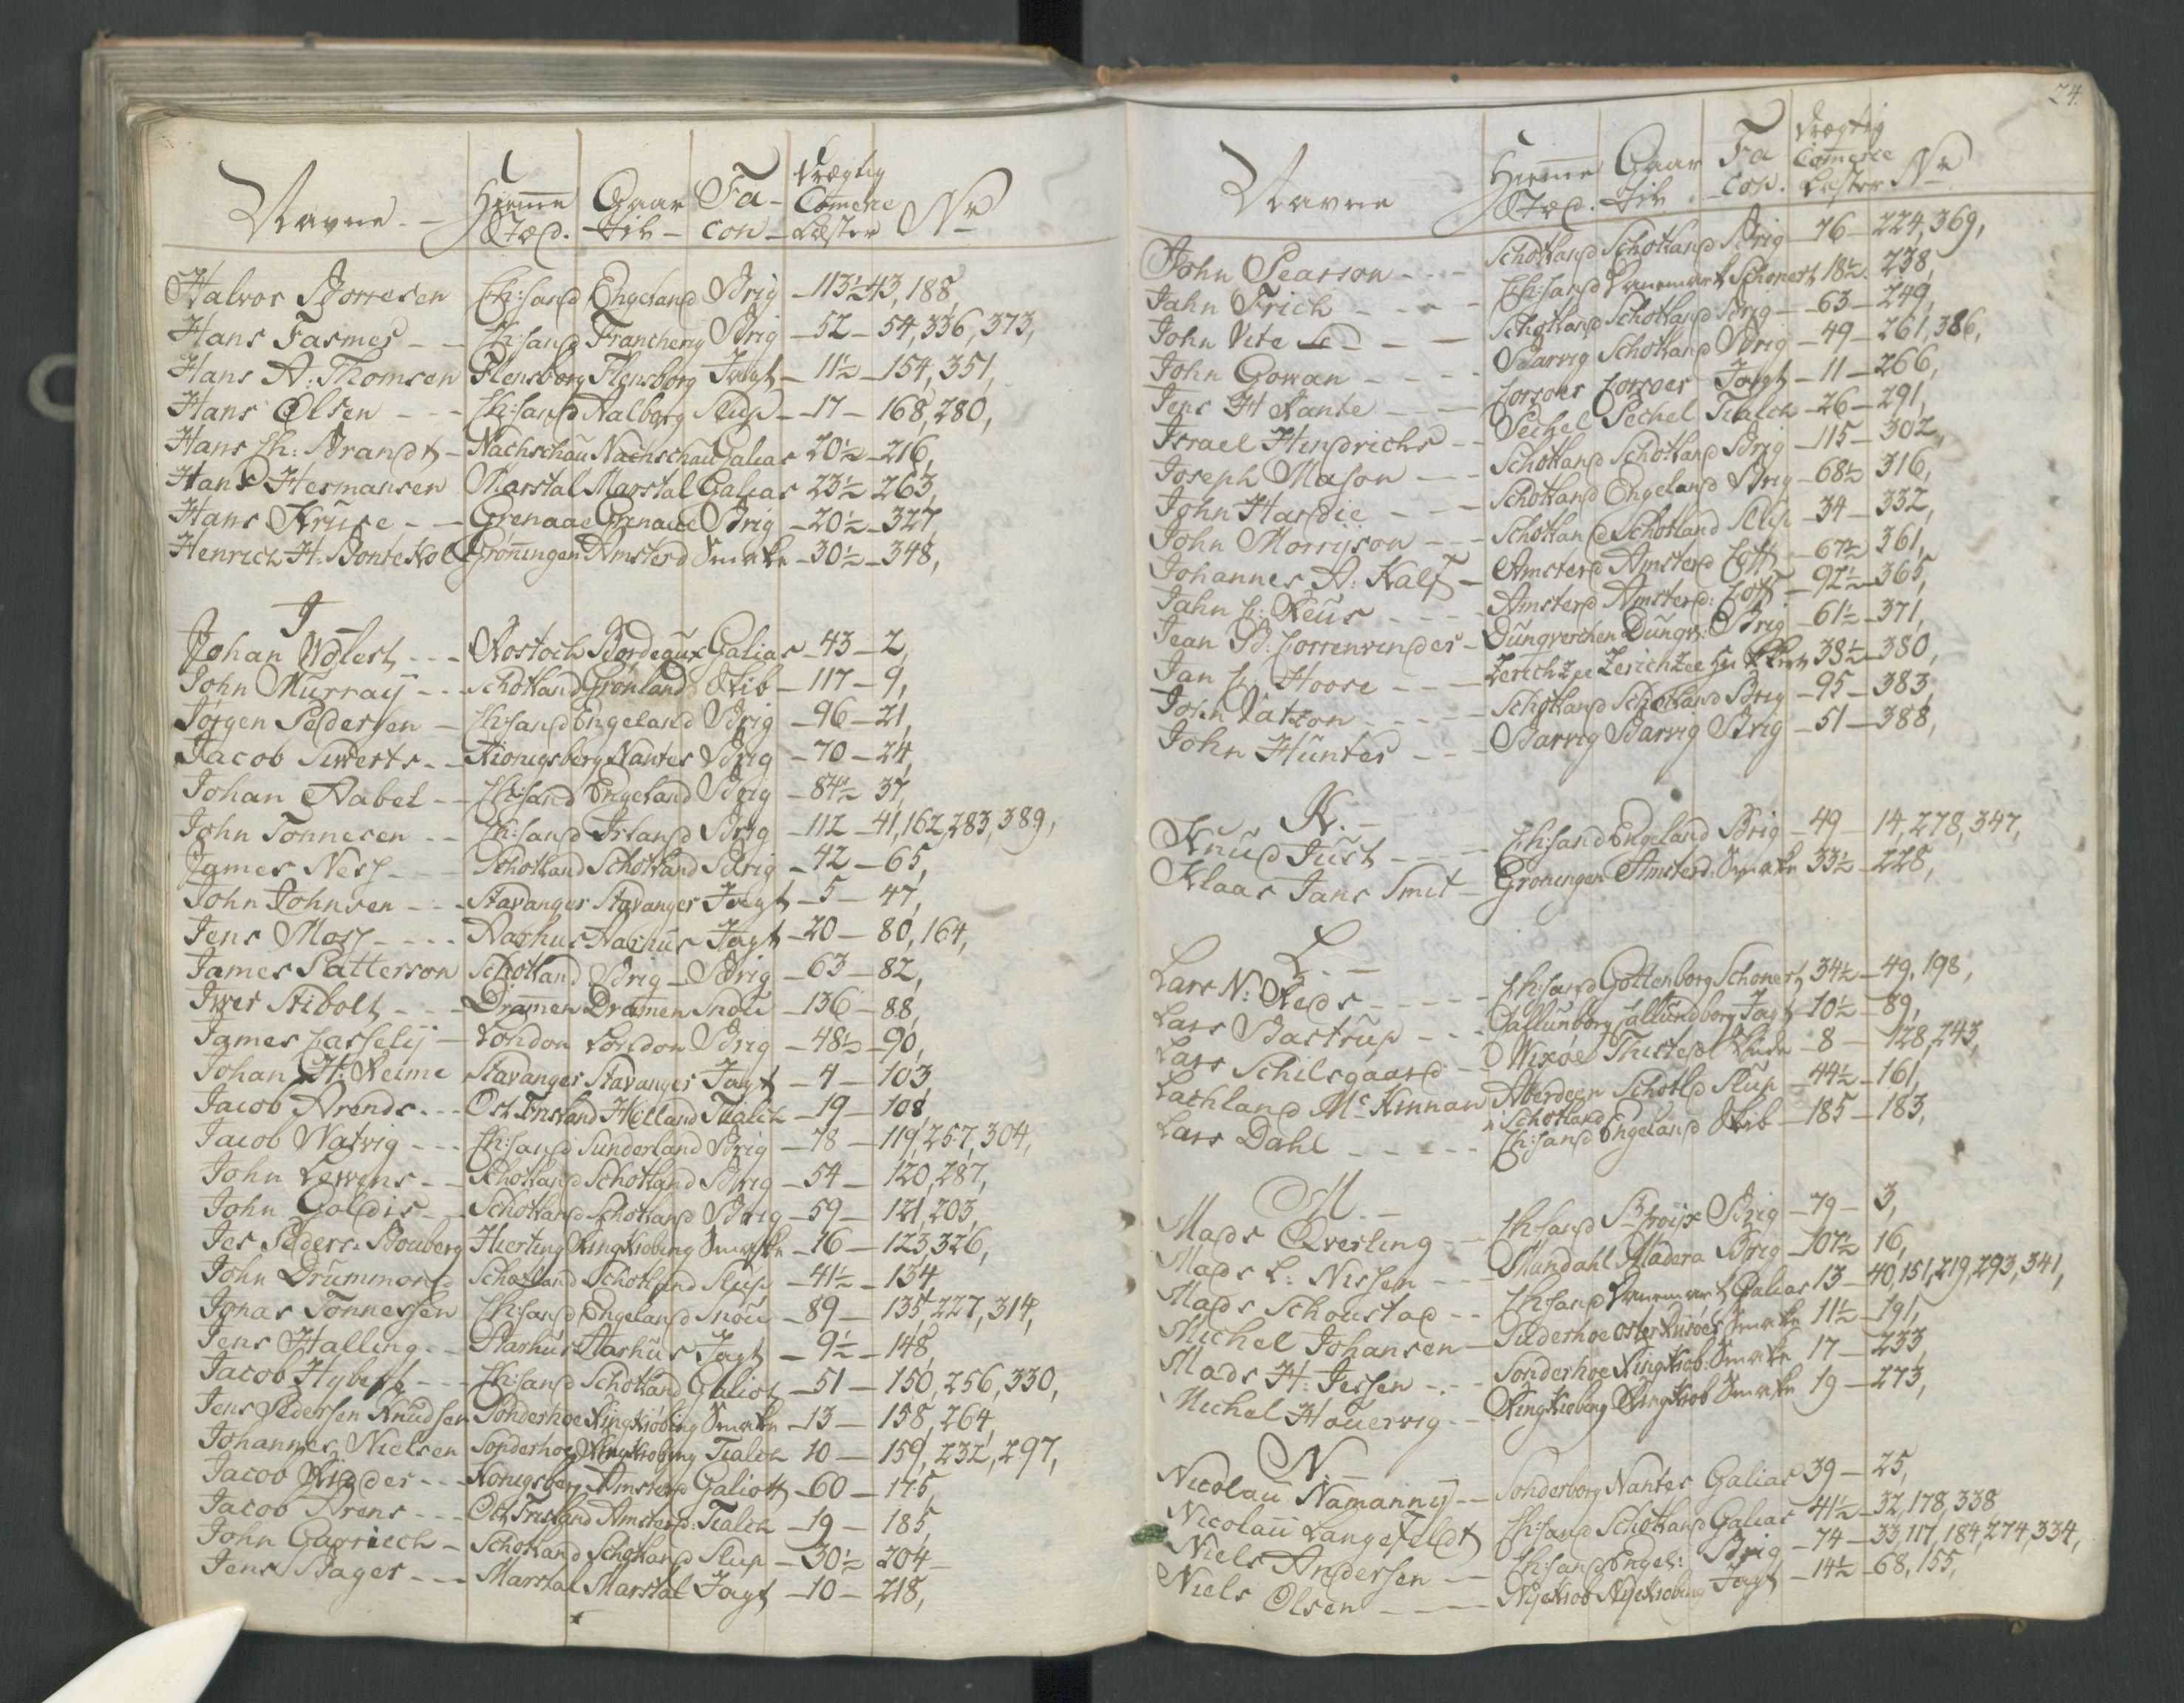 Navne - Hiemme Stæd. Gaar til - Facon - Drægtig Comerce Læster No
Halvor Borresen Ch:sand Engeland Brig - 113½ 43, 188,
Hans Fasmer - - Ch:sand Brig - 52 - 54, 336, 373,
Hans A: Thomsen Flensborg Flensborg Jagt - 11½ - 154, 351,
Hans Olsen - - - Ch:sand Aalborg Slup - 17 - 168, 280,
Hans Ch: Brandt - Nachschau Nachschau Galias 20½ - 216,
Hans Hermansen Marstal Marstal Galias 23½ 263,
Hans Kruse - - Grenaae Grenaae Brig - 20½ - 327
Henrich H: Bontekol Gröningen Amsterd Smakke - 30½ - 348,
J -
Johan - - - Rostoch Bordeaux Galias - 43 - 2,
John Murray - - Schotland Grönland Skib - 117 - 9,
Jørgen Pedersen - Ch:sand Engeland Brig - 96 - 21,
Jacob Siwerts - - Kionigsberg Nantes Brig - 70 - 24,
Johan Aabel - - Ch:sand Engeland Brig - 84½ 37,
John Tonnesen - - Ch:sand Irland Brig - 112 - 41, 162, 283, 389,
James Ness - - - Schotland Schotland Brig - 42 - 65,
John Johnsen - - - Stavanger Stavanger Jagt - 5 - 47,
Jens Moss - - - - Aarhus Aarhus Jagt - 20 - 80, 164,
James Patterson Schotland Brig - Brig - 63 - 82,
Iver Stibolt - - - Dramen Dramen Snau - 136 - 88,
James Casselij - London London Brig - 48½ - 90,
Johan H: Reime Stavanger Stavanger Jagt - 4 - 103,
Jacob Arends - - - Ost Friesland Holland Tialch - 19 - 108,
Jacob Natvig - - - Ch:sand Sunderland Brig - 78 - 119, 257, 304,
John Lewens - - Schotland Schotland Brig - 54 - 120, 287,
John Goldie - - Schotland Schotland Brig - 59 - 121, 203,
Jes Peders: Bouberg Hierting Ringkiøbing Smakke - 16 - 123, 326,
John Drummond Schotland Schotland Slup - 41½ - 134,
Jonas Tonnessen Ch:sand Engeland Snau - 89 - 135, 227, 314,
Jens Halling - - Aarhus Aarhus Jagt - 9½ - 148,
Jacob - - - Ch:sand Schotland Galiot - 51 - 150, 256, 330,
Jens Pedersen Knudsen Sonderhoe Ringkiøbing Smakke - 13 - 158, 264,
Johannes Nielsen Sonderhoe Ringkiobing Tialch 10 - 159, 232, 297,
Jacob - - - Konigsberg Amsterd Galioth - 60 - 175,
Jacob Arens - - - Ost Friesland Amsterd: Tialch - 19 - 185,
John Garrioch - Schotland Schotland Slup - 30½ 204 -
Jens Bager - - - Marstal Marstal Jagt - 10 - 218,
24.
Navne Hiemme Stæd. Gaar til Facon. Drægtig Comerce Læster No
John Pearson - - - Schotland Schotland Brig - 76 - 224, 369,
Jahn Frich - - - - Ch:sand Danemark Schonert 18½. 238,
John Vite - - - Schotland Schotland Brig - 63 - 249,
John Gowan - - - - Barvig Schotland Brig - 49 - 261, 386,
Jens H Kante - - - Corsoer Corsoer Jagt - 11 - 266,
Israel Hindrichs - - Pechel Pechel Tialch - 26 - 291,
Joseph Mason - - - Schotland Schotland Brig - 115 - 302,
John Hardie - - - Schotland Engeland Brig - 68½ 316,
John Morrison - - - Schotland Schotland Slup - 34 - 332,
Johannes A: Kalf - Amsterd Amsterd Coff - 67½ 361,
Jahn C: Reus - - - - Amsterd Amsterd: Coff - 92½ - 365,
Jean B: Correnwinder - Dunquerchen Dunqv: Brig - 61½ - 371,
Jan C: Hoose - - - Zerichzee Zerichzee 38½ - 380,
John Vatson - - - - Schotland Schotland Brig - 95 - 383,
John Hunter - - - Barvig Barvig Brig - 51 - 388,
K. -
Knud Just - - - - Ch:sand Engeland Brig - 49 - 14, 278, 347,
Klaas Jans Smit - Groningen Amsterd: Smakke 33½ - 228,
L. -
Lars N: Reds - - - - - Ch:sand Gottenborg Schonert 34½ - 49, 198,
Lars Bastrup - - - Callunborg Callundborg Jagt - 10½ - 89,
Lars Schilsgaard - Nixöe Thisted - 8 - 128, 243,
Lachland Mc Kinnan Aberdeen i Schotland Schotld Slup - 44½ - 161,
Lars Dahl - - - - - Ch:sand Engeland Skib - 185 - 183,
M. -
Mads Qverling - - Ch:sand Brig - 79 - 3,
Mads L: Nissen - - - Mandahl Madera Brig - 107½ 16,
Mads Schoustad - - Ch:sand Danemark Galias 13 - 40, 151, 219, 293, 341,
Michel Johansen - Suderhoe Oster Risöer Smakke 11½ - 191,
Mads H: Jessen - . - Sonderhoe Ringkiob: Smakke 17 - 233,
Michel Houervig - - Ringkiobing Ringkiob Smakke 19 - 273,
N. -
Nicolau Namanny - - Sonderborg Nantes Galias 39 - 25,
Nicolau Langefeldt Ch:sand Schotland Galias 41½ - 32, 178, 338
Niels Andersen - - Ch:sand Engel: Brig - 74 - 33, 117, 184, 274, 334,
Niels Olsen - - - - Nijekiob Nijekiobing Jagt - 14½ - 68, 155,